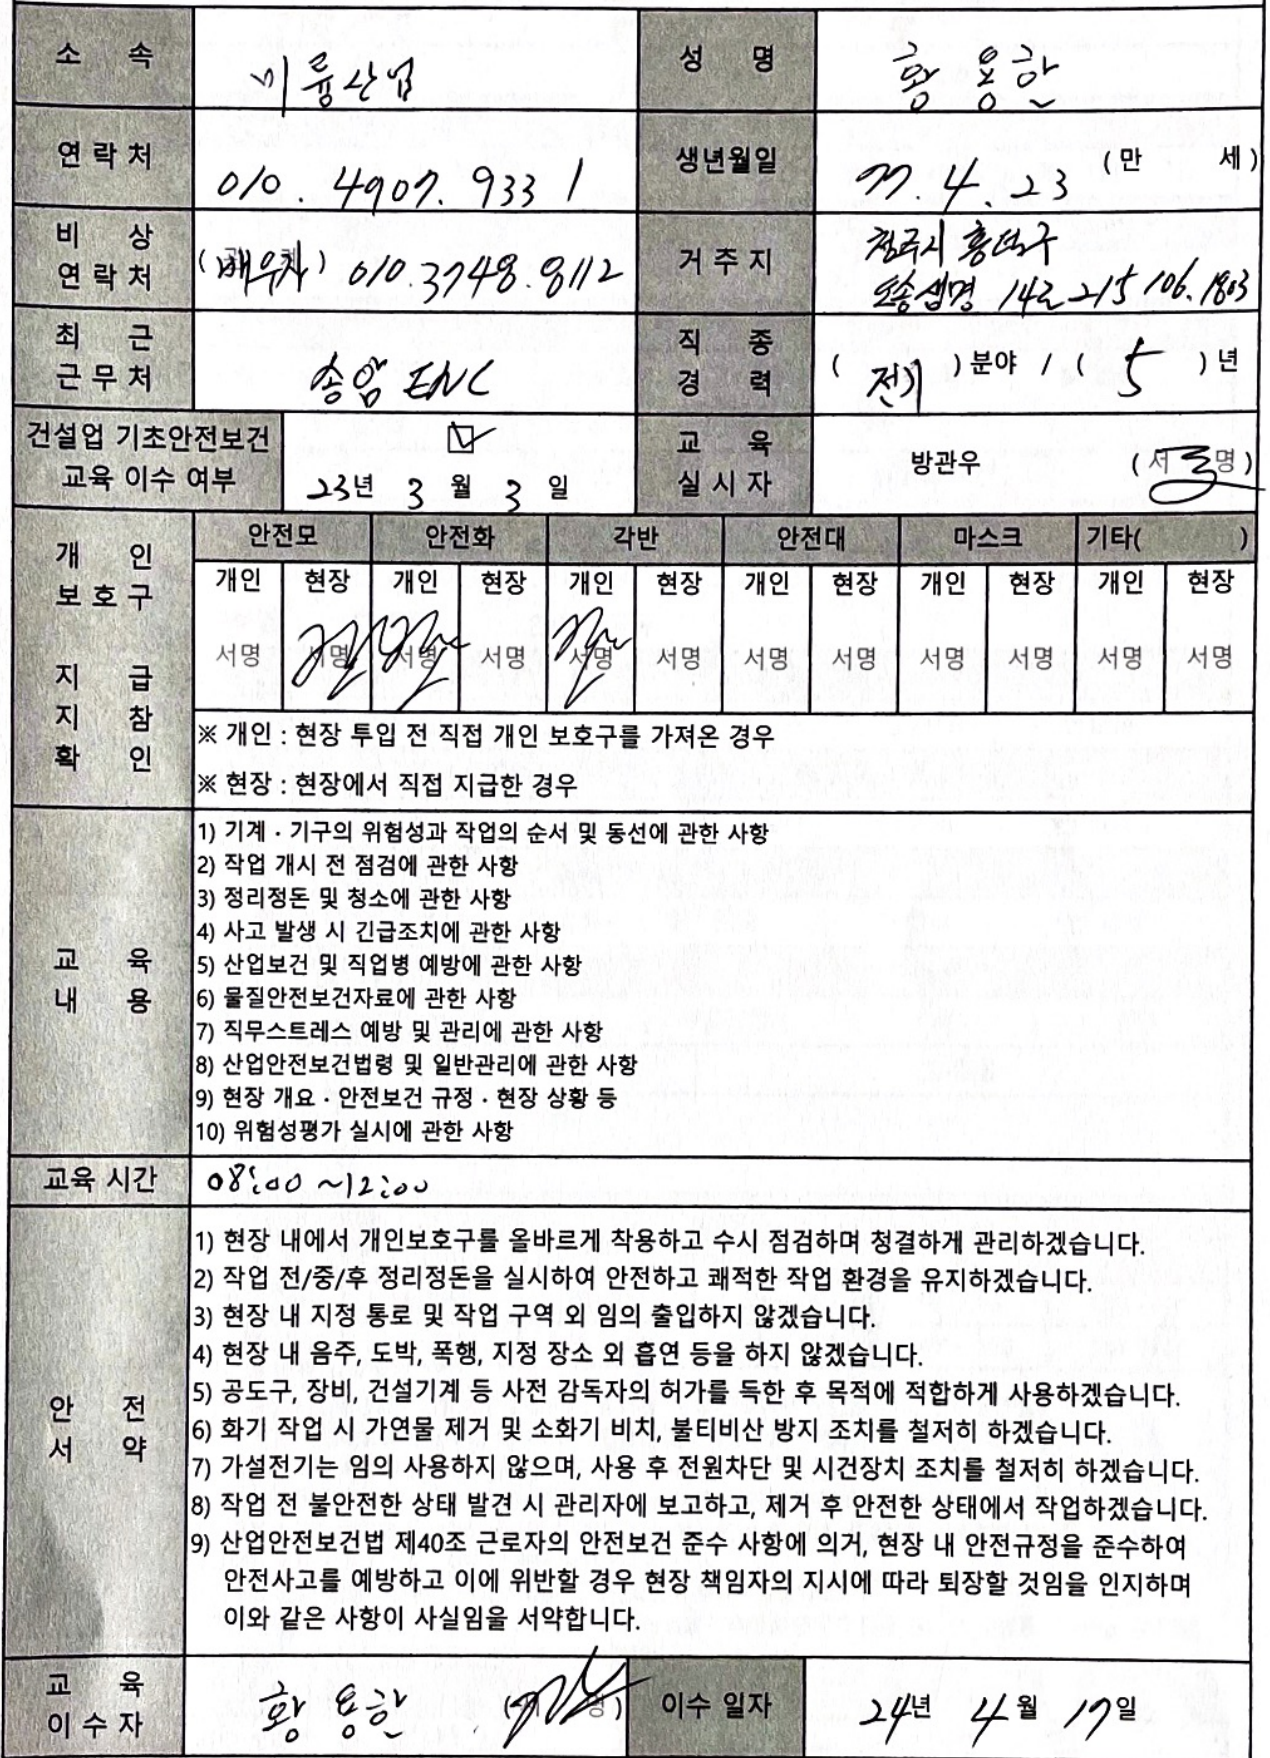 소 속 미륭산업 성 명 황용한
연락처 010. 4907. 9331 생년월일 77. 4. 23 (만 세)
비 상
연락처 (배우자) 010.3748.8112 거주지 청주시 흥덕구
오송생명 14로 215 106. 1803
최 근
근무처 송암 ENC 직 종
경 력 ( 전기 ) 분야 / ( 5 ) 년
건설업 기초안전보건
교육 이수 여부 ☑
23년 3 월 3 일 교 육
실시자 방관우 (서명)
개 인
보호구
지 급
지 참
확 인
안전모 안전화 각반 안전대 마스크 기타( )
개인 현장 개인 현장 개인 현장 개인 현장 개인 현장 개인 현장
서명 서명 서명 서명 서명 서명 서명 서명 서명 서명 서명 서명
※ 개인 : 현장 투입 전 직접 개인 보호구를 가져온 경우
※ 현장 : 현장에서 직접 지급한 경우
교 육
내 용
1) 기계 · 기구의 위험성과 작업의 순서 및 동선에 관한 사항
2) 작업 개시 전 점검에 관한 사항
3) 정리정돈 및 청소에 관한 사항
4) 사고 발생 시 긴급조치에 관한 사항
5) 산업보건 및 직업병 예방에 관한 사항
6) 물질안전보건자료에 관한 사항
7) 직무스트레스 예방 및 관리에 관한 사항
8) 산업안전보건법령 및 일반관리에 관한 사항
9) 현장 개요 · 안전보건 규정 · 현장 상황 등
10) 위험성평가 실시에 관한 사항
교육 시간 08:00 ~12:00
안 전
서 약
1) 현장 내에서 개인보호구를 올바르게 착용하고 수시 점검하며 청결하게 관리하겠습니다.
2) 작업 전/중/후 정리정돈을 실시하여 안전하고 쾌적한 작업 환경을 유지하겠습니다.
3) 현장 내 지정 통로 및 작업 구역 외 임의 출입하지 않겠습니다.
4) 현장 내 음주, 도박, 폭행, 지정 장소 외 흡연 등을 하지 않겠습니다.
5) 공도구, 장비, 건설기계 등 사전 감독자의 허가를 득한 후 목적에 적합하게 사용하겠습니다.
6) 화기 작업 시 가연물 제거 및 소화기 비치, 불티비산 방지 조치를 철저히 하겠습니다.
7) 가설전기는 임의 사용하지 않으며, 사용 후 전원차단 및 시건장치 조치를 철저히 하겠습니다.
8) 작업 전 불안전한 상태 발견 시 관리자에 보고하고, 제거 후 안전한 상태에서 작업하겠습니다.
9) 산업안전보건법 제40조 근로자의 안전보건 준수 사항에 의거, 현장 내 안전규정을 준수하여
안전사고를 예방하고 이에 위반할 경우 현장 책임자의 지시에 따라 퇴장할 것임을 인지하며
이와 같은 사항이 사실임을 서약합니다.
교 육
이수자 황용한 (서명) 이수 일자 24년 4월 17일